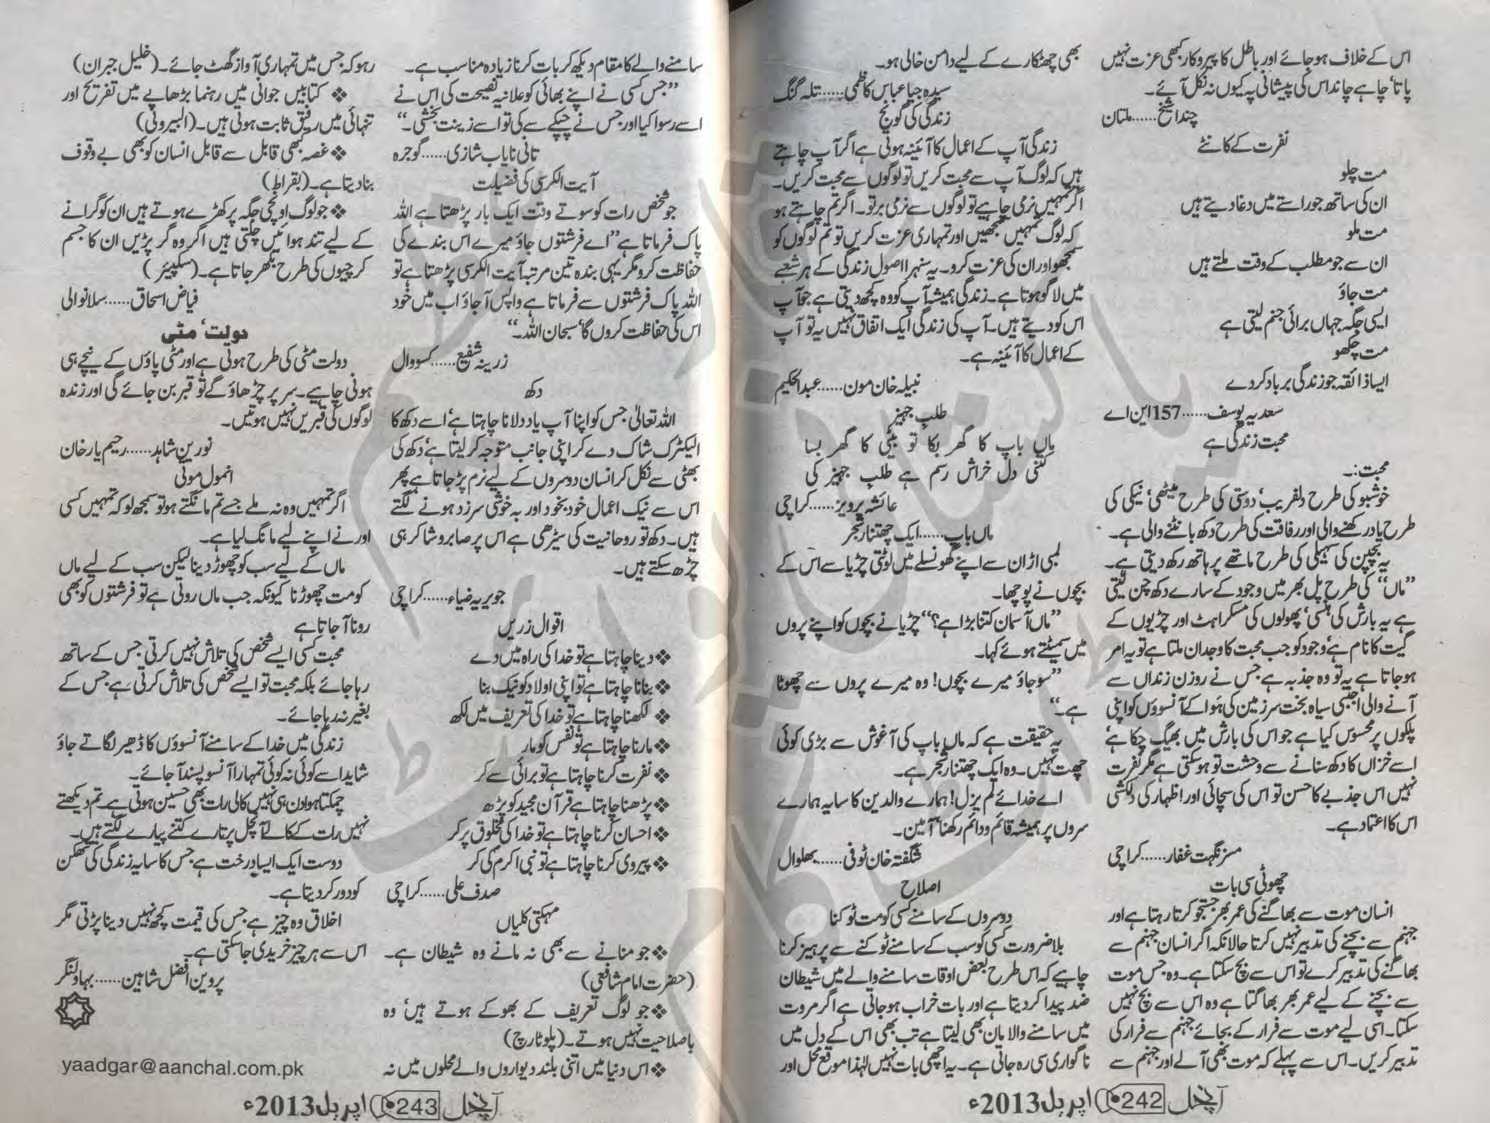 اس کے خلاف ہوجائے اور باطل کا پیروکار کبھی عزت نہیں
پاتا‘ چاہے چاند اس کی پیشانی پہ کیوں نہ نکل آئے۔
چندا شیخ……ملتان
نفرت کے کانٹے
مت چلو
ان کی ساتھ جو راستے میں دغا دیتے ہیں
مت ملو
ان سے جو مطلب کے وقت ملتے ہیں
مت جاؤ
ایسی جگہ جہاں برائی جنم لیتی ہے
مت چکھو
ایسا ذائقہ جو زندگی برباد کردے
سعدیہ یوسف……157 این اے
محبت زندگی ہے
محبت:۔
خوشبو کی طرح دلفریب‘ دوستی کی طرح میٹھی‘ نیکی کی
طرح یاد رکھنے والی اور رفاقت کی طرح دکھ بانٹنے والی ہے۔
یہ بچپن کی سہیلی کی طرح ماتھے پر ہاتھ رکھ دیتی ہے۔
”ماں“ کی طرح پل بھر میں وجود کے سارے دکھ چن لیتی
ہے یہ بارش کی ہنسی‘ پھولوں کی مسکراہٹ اور چڑیوں کے
گیت کا نام ہے‘ وجود کو جب محبت کا وجدان ملتا ہے تو یہ امر
ہوجاتا ہے یہ تو وہ جذبہ ہے جس نے روزن زنداں سے
آنے والی اجنبی سیاہ بخت سرزمین کی ہوا کے آنسوؤں کو اپنی
پلکوں پر محسوس کیا ہے جو اس کی بارش میں بھیگ چکا ہے‘
اسے خزاں کا دکھ سنانے سے وحشت تو ہوسکتی ہے مگر نفرت
نہیں اس جذبے کا حسن تو اس کی سچائی اور اظہار کی دلکشی
اس کا اعتماد ہے۔
مسز نگہت غفار……کراچی
چھوٹی سی بات
انسان موت سے بھاگنے کی عمر بھر جستجو کرتا رہتا ہے اور
جہنم سے بچنے کی تدبیر نہیں کرتا حالانکہ اگر انسان جہنم سے
بھاگنے کی تدبیر کرے تو اس سے بچ سکتا ہے۔ وہ جس موت
سے بچنے کے لیے عمر بھر بھاگتا ہے وہ اس سے بچ نہیں
سکتا۔ اسی لیے موت سے فرار کے بجائے جہنم سے فرار کی
تدبیر کریں۔ اس سے پہلے کہ موت بھی آلے اور جہنم سے
بھی چھٹکارے کے لیے دامن خالی ہو۔
سیدہ جیا عباس کاظمی……تلہ گنگ
زندگی کی گونج
زندگی آپ کے اعمال کا آئینہ ہوتی ہے اگر آپ چاہتے
ہیں کہ لوگ آپ سے محبت کریں تو لوگوں سے محبت کریں۔
اگر تمہیں نرمی چاہیے تو لوگوں سے نرمی برتو۔ اگر تم چاہتے ہو
کہ لوگ تمہیں سمجھیں اور تمہاری عزت کریں تو تم لوگوں کو
سمجھو اور ان کی عزت کرو۔ یہ سنہرا اصول زندگی کے ہر شعبے
میں لاگو ہوتا ہے۔ زندگی ہمیشہ آپ کو وہ کچھ دیتی ہے جو آپ
اس کو دیتے ہیں۔ آپ کی زندگی ایک اتفاق نہیں یہ تو آپ
کے اعمال کا آئینہ ہے۔
نبیلہ خان مون……عبدالحکیم
طلب جہیز
ماں باپ کا گھر بکا تو بیٹی کا گھر بسا
کتنی دل خراش رسم ہے طلب جہیز کی
عائشہ پرویز……کراچی
ماں باپ……ایک چھتنار شجر
لمبی اڑان سے اپنے گھونسلے میں لوٹتی چڑیا سے اس کے
بچوں نے پوچھا۔
”ماں آسمان کتنا بڑا ہے؟“ چڑیا نے بچوں کو اپنے پروں
میں سمیٹتے ہوئے کہا۔
”سوجاؤ میرے بچوں! وہ میرے پروں سے چھوٹا
ہے۔“
یہ حقیقت ہے کہ ماں باپ کی آغوش سے بڑی کوئی
چھت نہیں۔ وہ ایک چھتنار شجر ہے۔
اے خدائے لم یزل! ہمارے والدین کا سایہ ہمارے
سروں پر ہمیشہ قائم و دائم رکھنا‘ آمین۔
شگفتہ خان ٹوفی……بھلوال
اصلاح
دوسروں کے سامنے کسی کو مت ٹوکنا
بلاضرورت کسی کو سب کے سامنے ٹوکنے سے پرہیز کرنا
چاہیے کہ اس طرح بعض اوقات سامنے والے میں شیطان
ضد پیدا کردیتا ہے اور بات خراب ہوجاتی ہے اگر مروت
میں سامنے والا مان بھی لیتا ہے تب بھی اس کے دل میں
ناگواری سی رہ جاتی ہے۔ یہ اچھی بات نہیں لہٰذا موقع محل اور
آنچل 242 اپریل 2013ء
سامنے والے کا مقام دیکھ کر بات کرنا زیادہ مناسب ہے۔
”جس کسی نے اپنے بھائی کو علانیہ نصیحت کی اس نے
اسے رسوا کیا اور جس نے چپکے سے کی تو اسے زینت بخشی۔“
تانی نایاب شازی……گوجرہ
آیت الکرسی کی فضیلت
جو شخص رات کو سوتے وقت ایک بار پڑھتا ہے اللہ
پاک فرماتا ہے ”اے فرشتوں جاؤ میرے اس بندے کی
حفاظت کرو مگر یہی بندہ تین مرتبہ آیت الکرسی پڑھتا ہے تو
اللہ پاک فرشتوں سے فرماتا ہے واپس آجاؤ اب میں خود
اس کی حفاظت کروں گا‘ سبحان اللہ۔“
زرینہ شفیع……کسووال
دکھ
اللہ تعالیٰ جس کو اپنا آپ یاد دلانا چاہتا ہے‘ اسے دکھ کا
الیکٹرک شاک دے کر اپنی جانب متوجہ کرلیتا ہے‘ دکھ کی
بھٹی سے نکل کر انسان دوسروں کے لیے نرم پڑجاتا ہے پھر
اس سے نیک اعمال خودبخود اور بہ خوشی سرزد ہونے لگتے
ہیں۔ دکھ تو روحانیت کی سیڑھی ہے اس پر صابر و شاکر ہی
چڑھ سکتے ہیں۔
جویریہ ضیاء……کراچی
اقوال زریں
❖ دینا چاہتا ہے تو خدا کی راہ میں دے
❖ بنانا چاہتا ہے تو اپنی اولاد کو نیک بنا
❖ لکھنا چاہتا ہے تو خدا کی تعریف میں لکھ
❖ مارنا چاہتا ہے تو نفس کو مار
❖ نفرت کرنا چاہتا ہے تو برائی سے کر
❖ پڑھنا چاہتا ہے قرآن مجید کو پڑھ
❖ احسان کرنا چاہتا ہے تو خدا کی مخلوق پر کر
❖ پیروی کرنا چاہتا ہے تو نبی اکرم کی کر
صدف علی……کراچی
مہکتی کلیاں
❖ جو منانے سے بھی نہ مانے وہ شیطان ہے۔
(حضرت امام شافعی)
❖ جو لوگ تعریف کے بھوکے ہوتے ہیں‘ وہ
باصلاحیت نہیں ہوتے۔ (پلوٹارچ)
❖ اس دنیا میں اتنی بلند دیواروں والے محلوں میں نہ
رہو کہ جس میں تمہاری آواز گھٹ جائے۔ (خلیل جبران)
❖ کتابیں جوانی میں رہنما بڑھاپے میں تفریح اور
تنہائی میں رفیق ثابت ہوتی ہیں۔ (البیرونی)
❖ غصہ بھی قابل سے قابل انسان کو بھی بے وقوف
بنادیتا ہے۔ (بقراط)
❖ جو لوگ اونچی جگہ پر کھڑے ہوتے ہیں ان کو گرانے
کے لیے تند ہوائیں چلتی ہیں اگر وہ گر پڑیں ان کا جسم
کرچیوں کی طرح بکھر جاتا ہے۔ (شیکسپیئر)
فیاض اسحاق……سلانوالی
دولت‘ مٹی
دولت مٹی کی طرح ہوتی ہے اور مٹی پاؤں کے نیچے ہی
ہونی چاہیے۔ سر پر چڑھاؤ گے تو قبر بن جائے گی اور زندہ
لوگوں کی قبریں نہیں ہوتیں۔
نورین شاہد……رحیم یار خان
انمول موتی
اگر تمہیں وہ نہ ملے جسے تم مانگتے ہو تو سمجھ لو کہ تمہیں کسی
اور نے اپنے لیے مانگ لیا ہے۔
ماں کے لیے سب کو چھوڑ دینا لیکن سب کے لیے ماں
کو مت چھوڑنا کیونکہ جب ماں روتی ہے تو فرشتوں کو بھی
رونا آجاتا ہے
محبت کسی ایسے شخص کی تلاش نہیں کرتی جس کے ساتھ
رہا جائے بلکہ محبت تو ایسے شخص کی تلاش کرتی ہے جس کے
بغیر نہ رہا جائے۔
زندگی میں خدا کے سامنے آنسوؤں کا ڈھیر لگاتے جاؤ
شاید اسے کوئی نہ کوئی تمہارا آنسو پسند آجائے۔
چمکتا ہوا دن ہی نہیں کالی رات بھی حسین ہوتی ہے۔ تم دیکھتے
نہیں رات کے کالے آنچل پر تارے کتنے پیارے لگتے ہیں۔
دوست ایک ایسا درخت ہے جس کا سایہ زندگی کی تھکن
کو دور کردیتا ہے۔
اخلاق وہ چیز ہے جس کی قیمت کچھ نہیں دینا پڑتی مگر
اس سے ہر چیز خریدی جاسکتی ہے۔
پروین افضل شاہین……بہاولنگر
yaadgar@aanchal.com.pk
آنچل 243 اپریل 2013ء